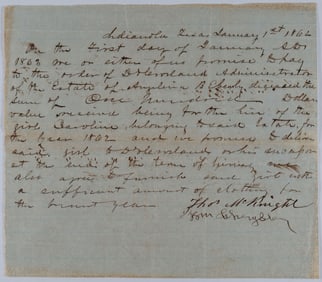 Indianola Texas January 1st 1862
On the first day of January AD
1863 we or either of us promise to pay
to the order of D Cleveland Administrator
of the Estate of Angelina B. deceased the
Sum of One Hundred Dollars
value received being for the hire of the
girl Caroline belonging to said Estate for
the year 1862 and we promise to deliver
said girl to D Cleveland or his
at the end of the term of hiring and
also agree to furnish said girl with
a sufficient amount of clothing for
the present year
Thos McKnight